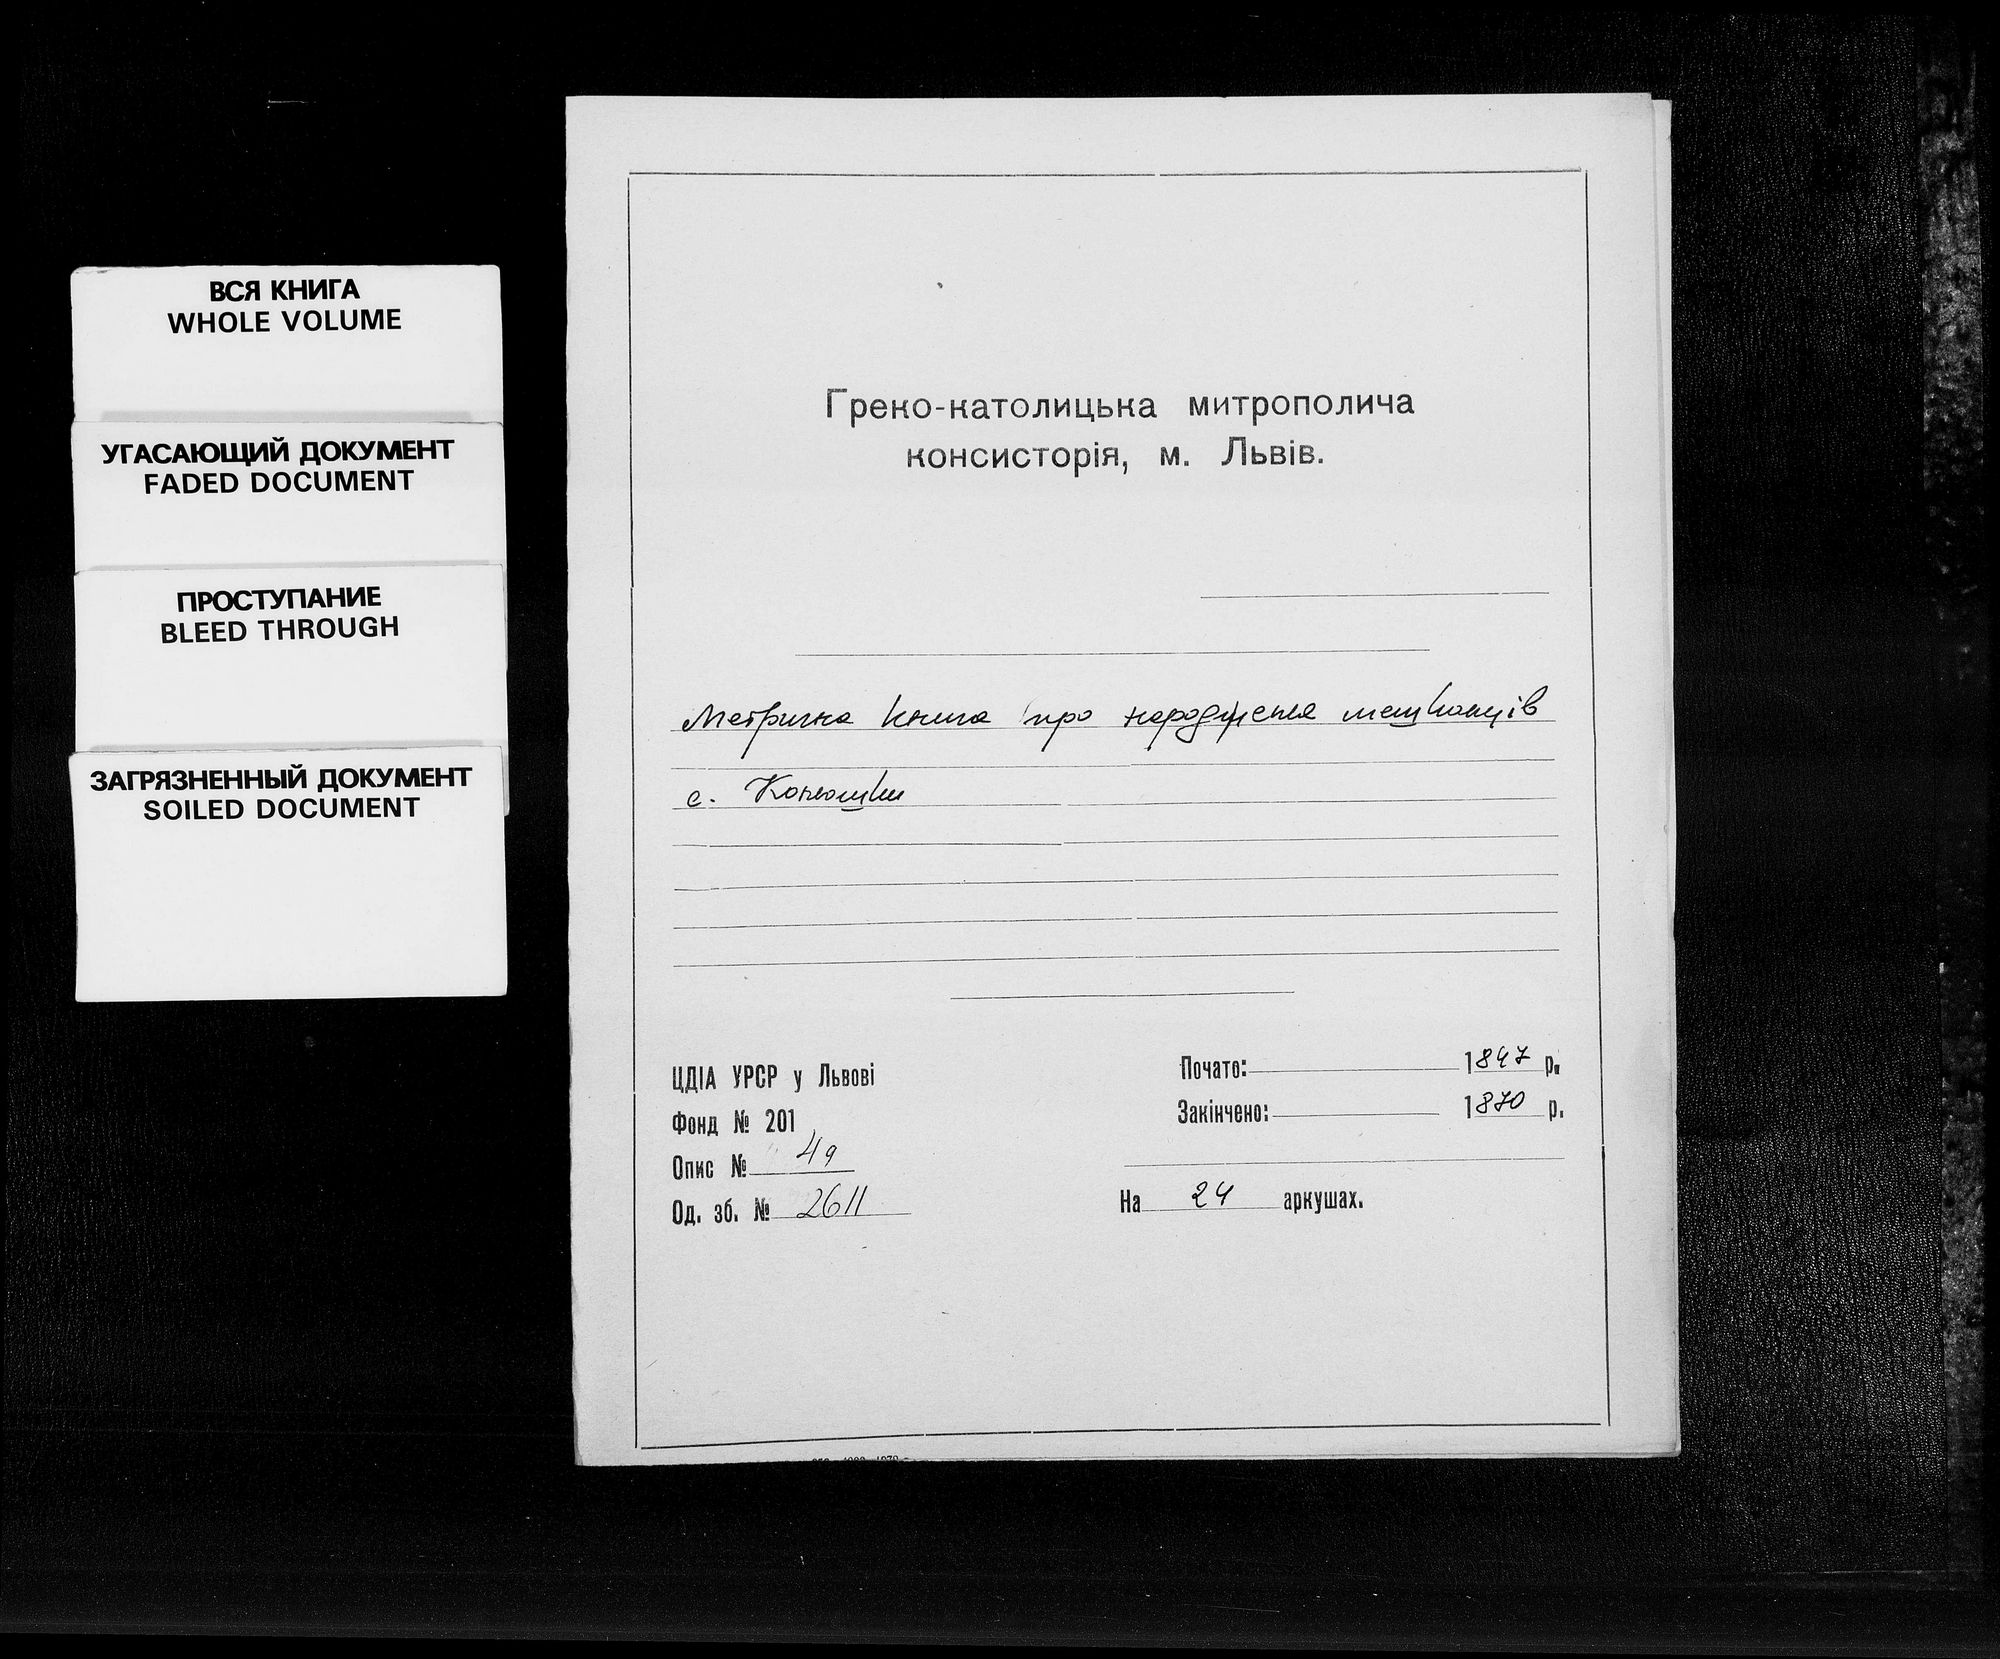 ВСЯ КНИГА
WHOLE VOLUME
УГАСАЮЩИЙ ДОКУМЕНТ
FADED DOCUMENT
ПРОСТУПАНИЕ
BLEED THROUGH
ЗАГРЯЗНЕННЫЙ ДОКУМЕНТ
SOILED DOCUMENT
Греко-католицька митрополича
консисторія, м. Львів.
Метрична книга про народження мешканців
с. Конюшки
ЦДІА УРСР у Львові
Фонд № 201
Опис № 4а
Од. зб. № 2611
Почато: 1847 р.
Закінчено: 1870 р.
На 24 аркушах.